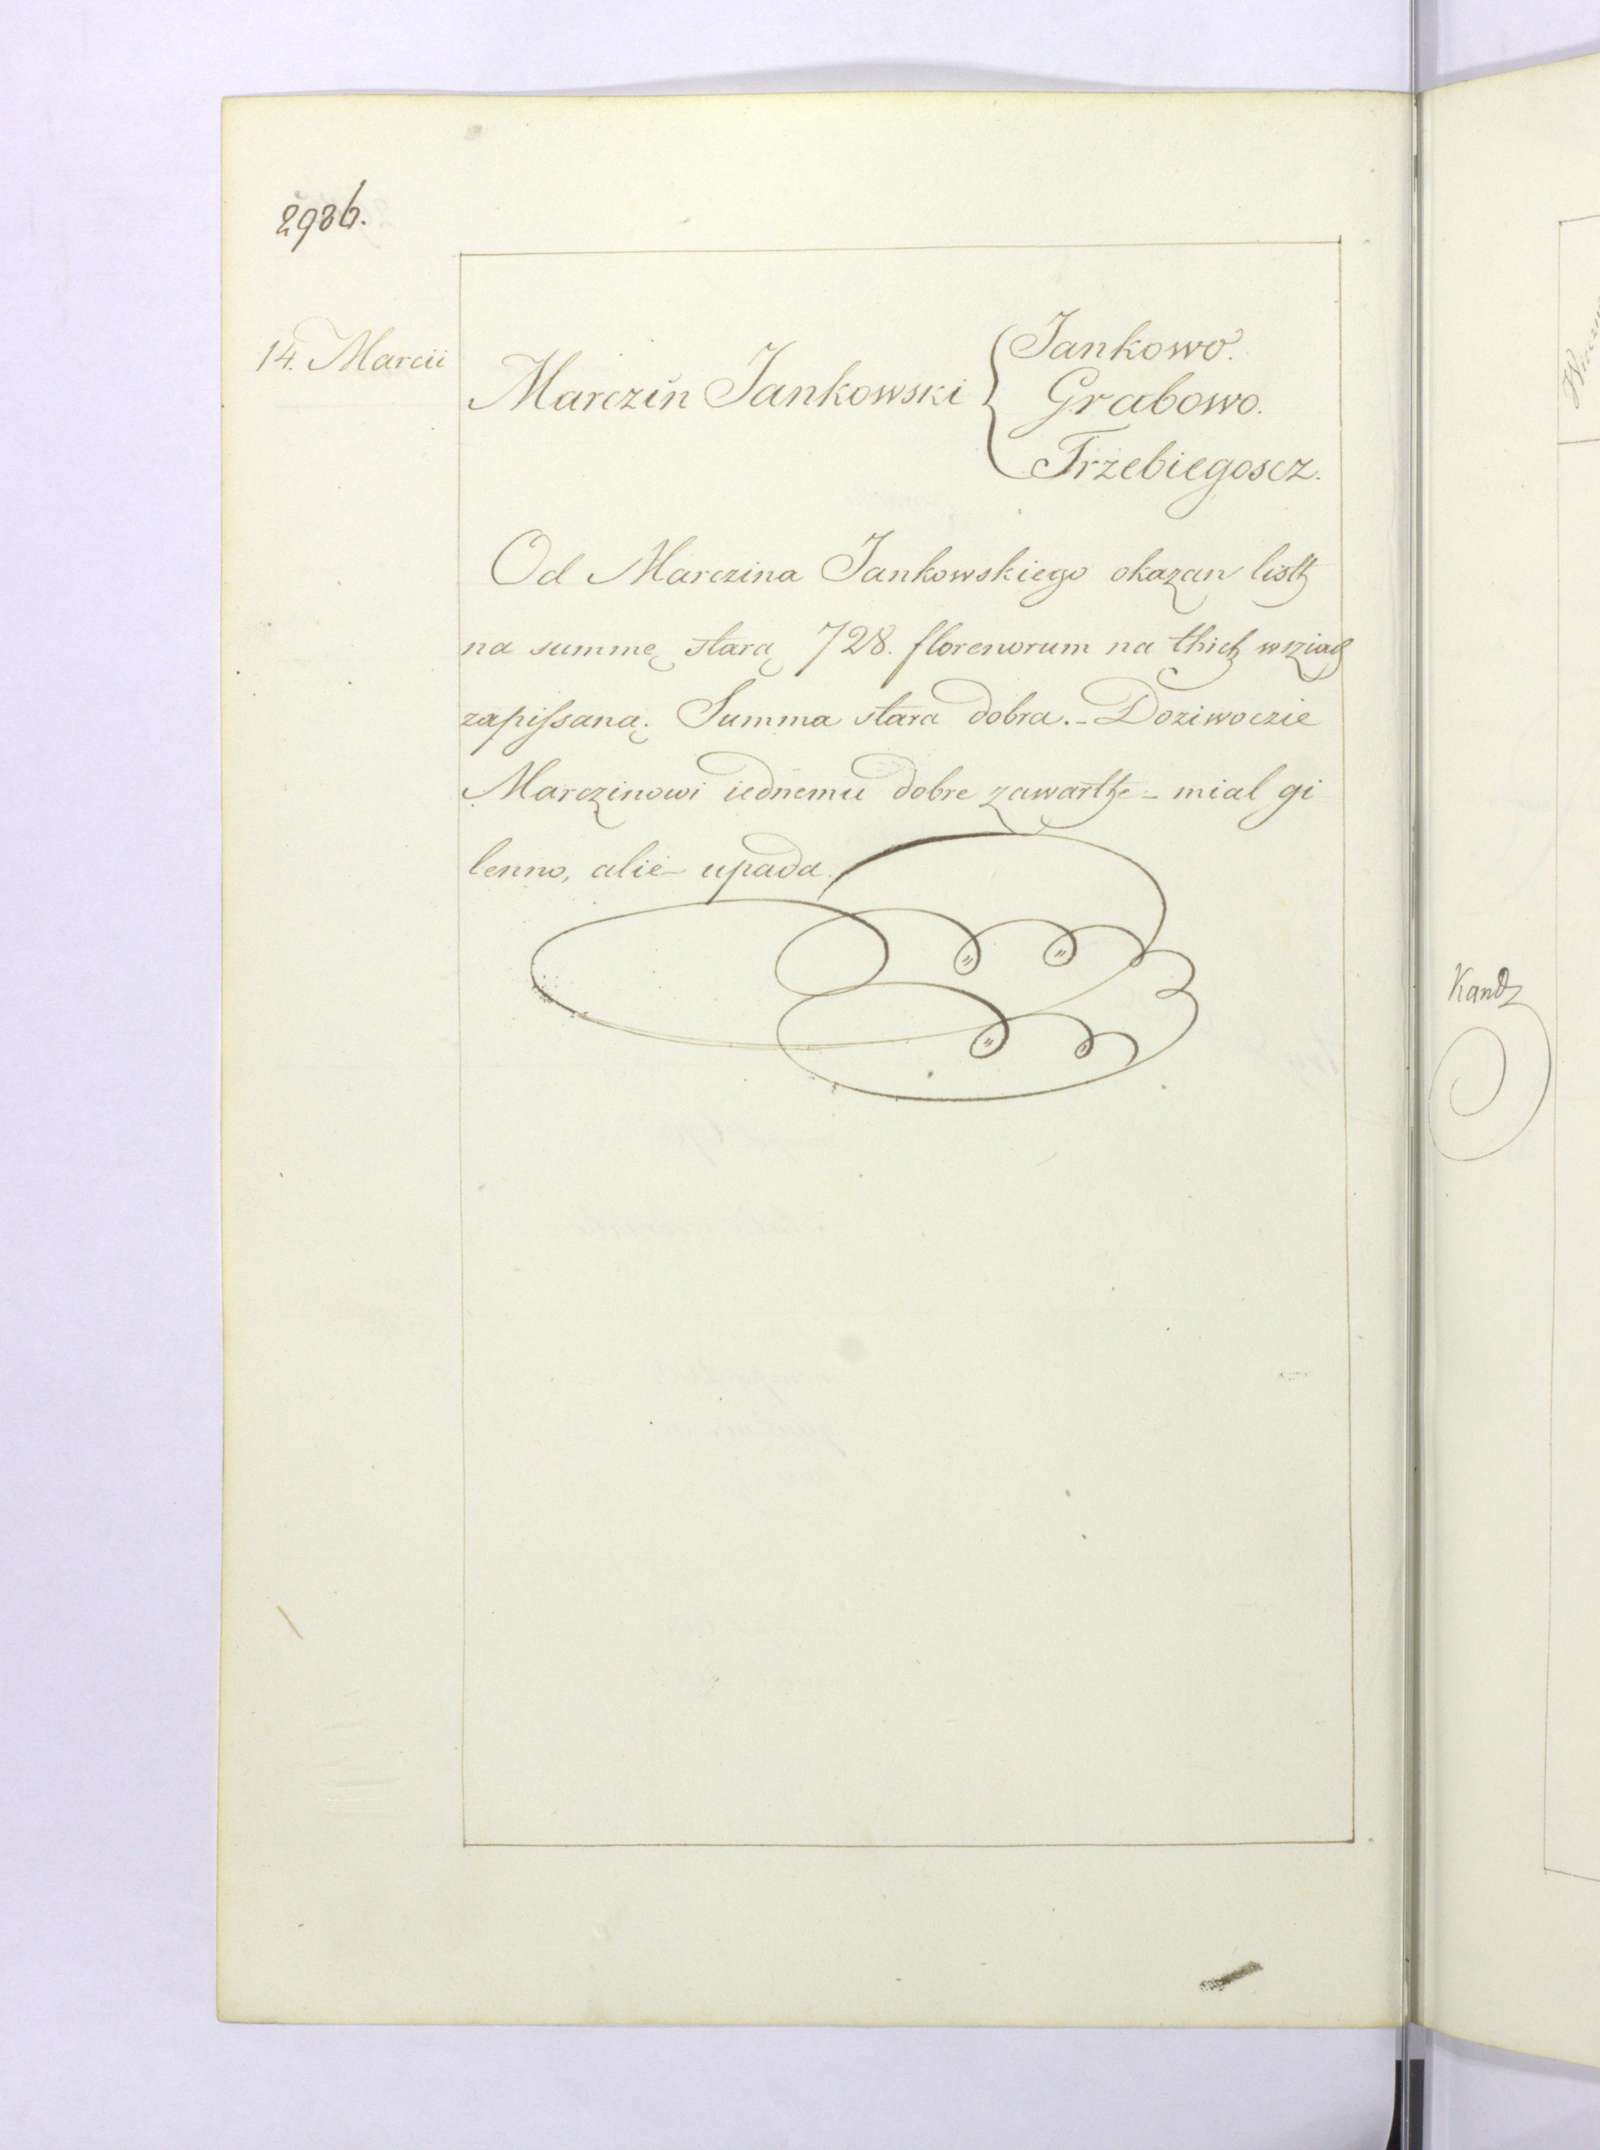 2986.
14. Marcii
Marczin Jankowski
Jankowo.
Grabowo.
Trzebiegoscz.
Od Marczina Jankowskiego okazan listh
na summę starą 728. florenorum na thich wsziach
zapissaną. Summa stara dobra. – Doziwoczie
Marczinowi iednemu dobre zawarthe – mial gi
lenno, alie – upada.